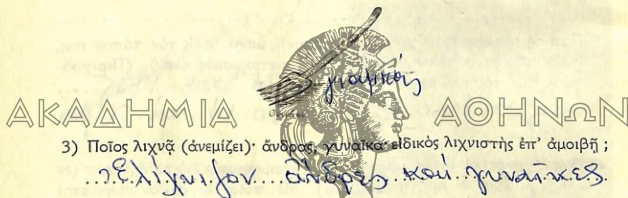 γιαμκάς
ΑΚΑΔΗΜΙΑ ΑΘΗΝΩΝ
3) Ποῖος λιχνᾷ (ἀνεμίζει)· ἄνδρας, γυναίκα· εἰδικὸς λιχνιστὴς ἐπ' ἀμοιβῇ ;
Ἐλίχνιζον ἄνδρες καὶ γυναῖκες